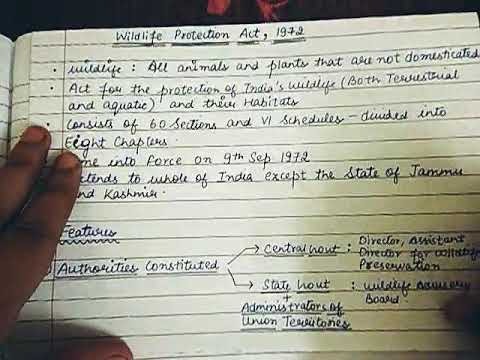 Wildlife Protection Act, 1972
• Wildlife : All animals and plants that are not domesticated
• Act for the protection of India's wildlife (Both Terrestrial
and aquatic) and their Habitats
• Consists of 60 Sections and VI Schedules - divided into
Eight Chapters.
into Force on 9th Sep 1972
to whole of India except the State of Jammu
and Kashmir.
Features
Authorities Constituted
→ Central Govt : Director, Assistant
Director for
Preservation
→ State Govt : Wildlife Advisory
+ Board.
Administrators of
Union Territories